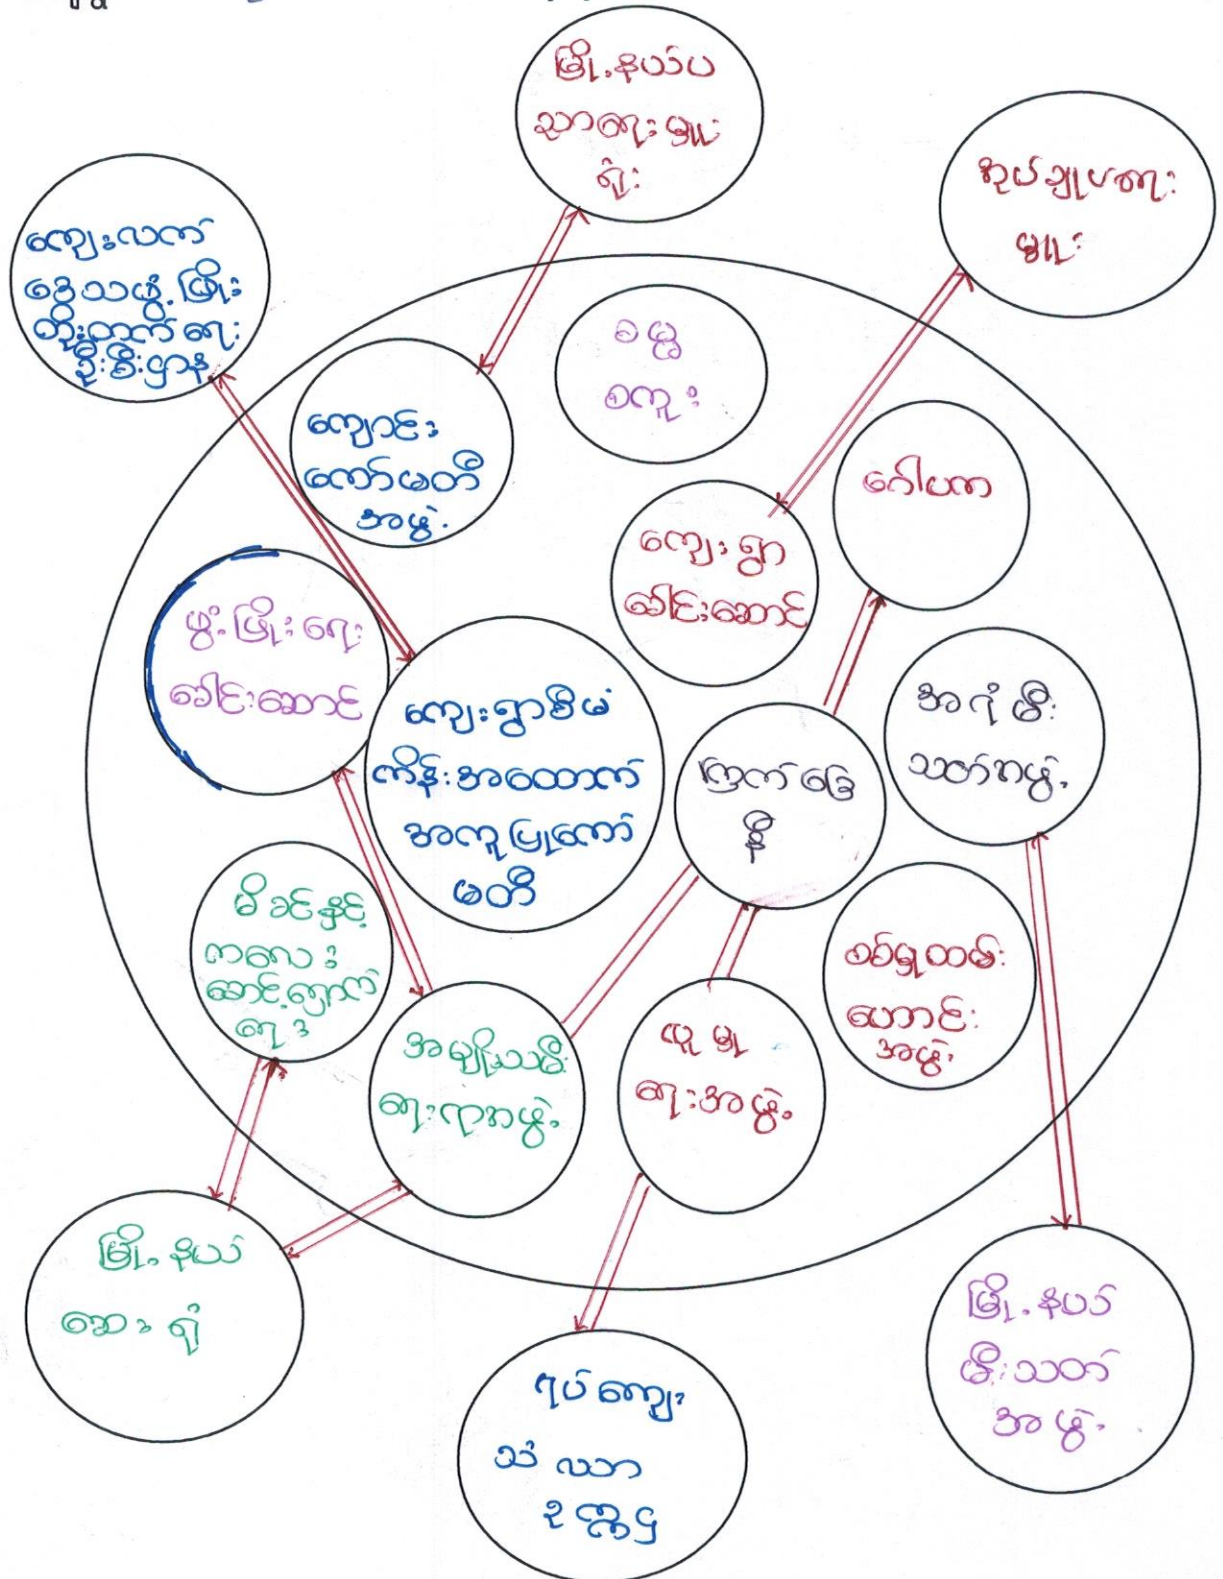 မြို့နယ်ပ
ညာရေးမှူး
ရုံး
အုပ်ချုပ်ရေး
မှူး
ကျေးလက်
ဒေသဖွံ့ဖြိုး
တိုးတက်ရေး
ဦးစီးဌာန
ကျောင်း
ကော်မတီ
အဖွဲ့
ဂေါပက
ကျေးရွာ
ခေါင်းဆောင်
ဖွံ့ဖြိုးရေး
ခေါင်းဆောင်
ကျေးရွာစီမံ
ကိန်းအထောက်
အကူပြုကော်
မတီ
ကြက်ခြေ
နီ
အရံမီး
သတ်အဖွဲ့
မိခင်နှင့်
ကလေး
စောင့်ရှောက်
ရေး
အမျိုးသမီး
ရေးရာအဖွဲ့
လူမှု
ရေးအဖွဲ့
စစ်မှုထမ်း
ဟောင်း
အဖွဲ့
မြို့နယ်
ဆေးရုံ
ရပ်ကျေး
သံဃာ
ဥက္ကဋ္ဌ
မြို့နယ်
မီးသတ်
အဖွဲ့